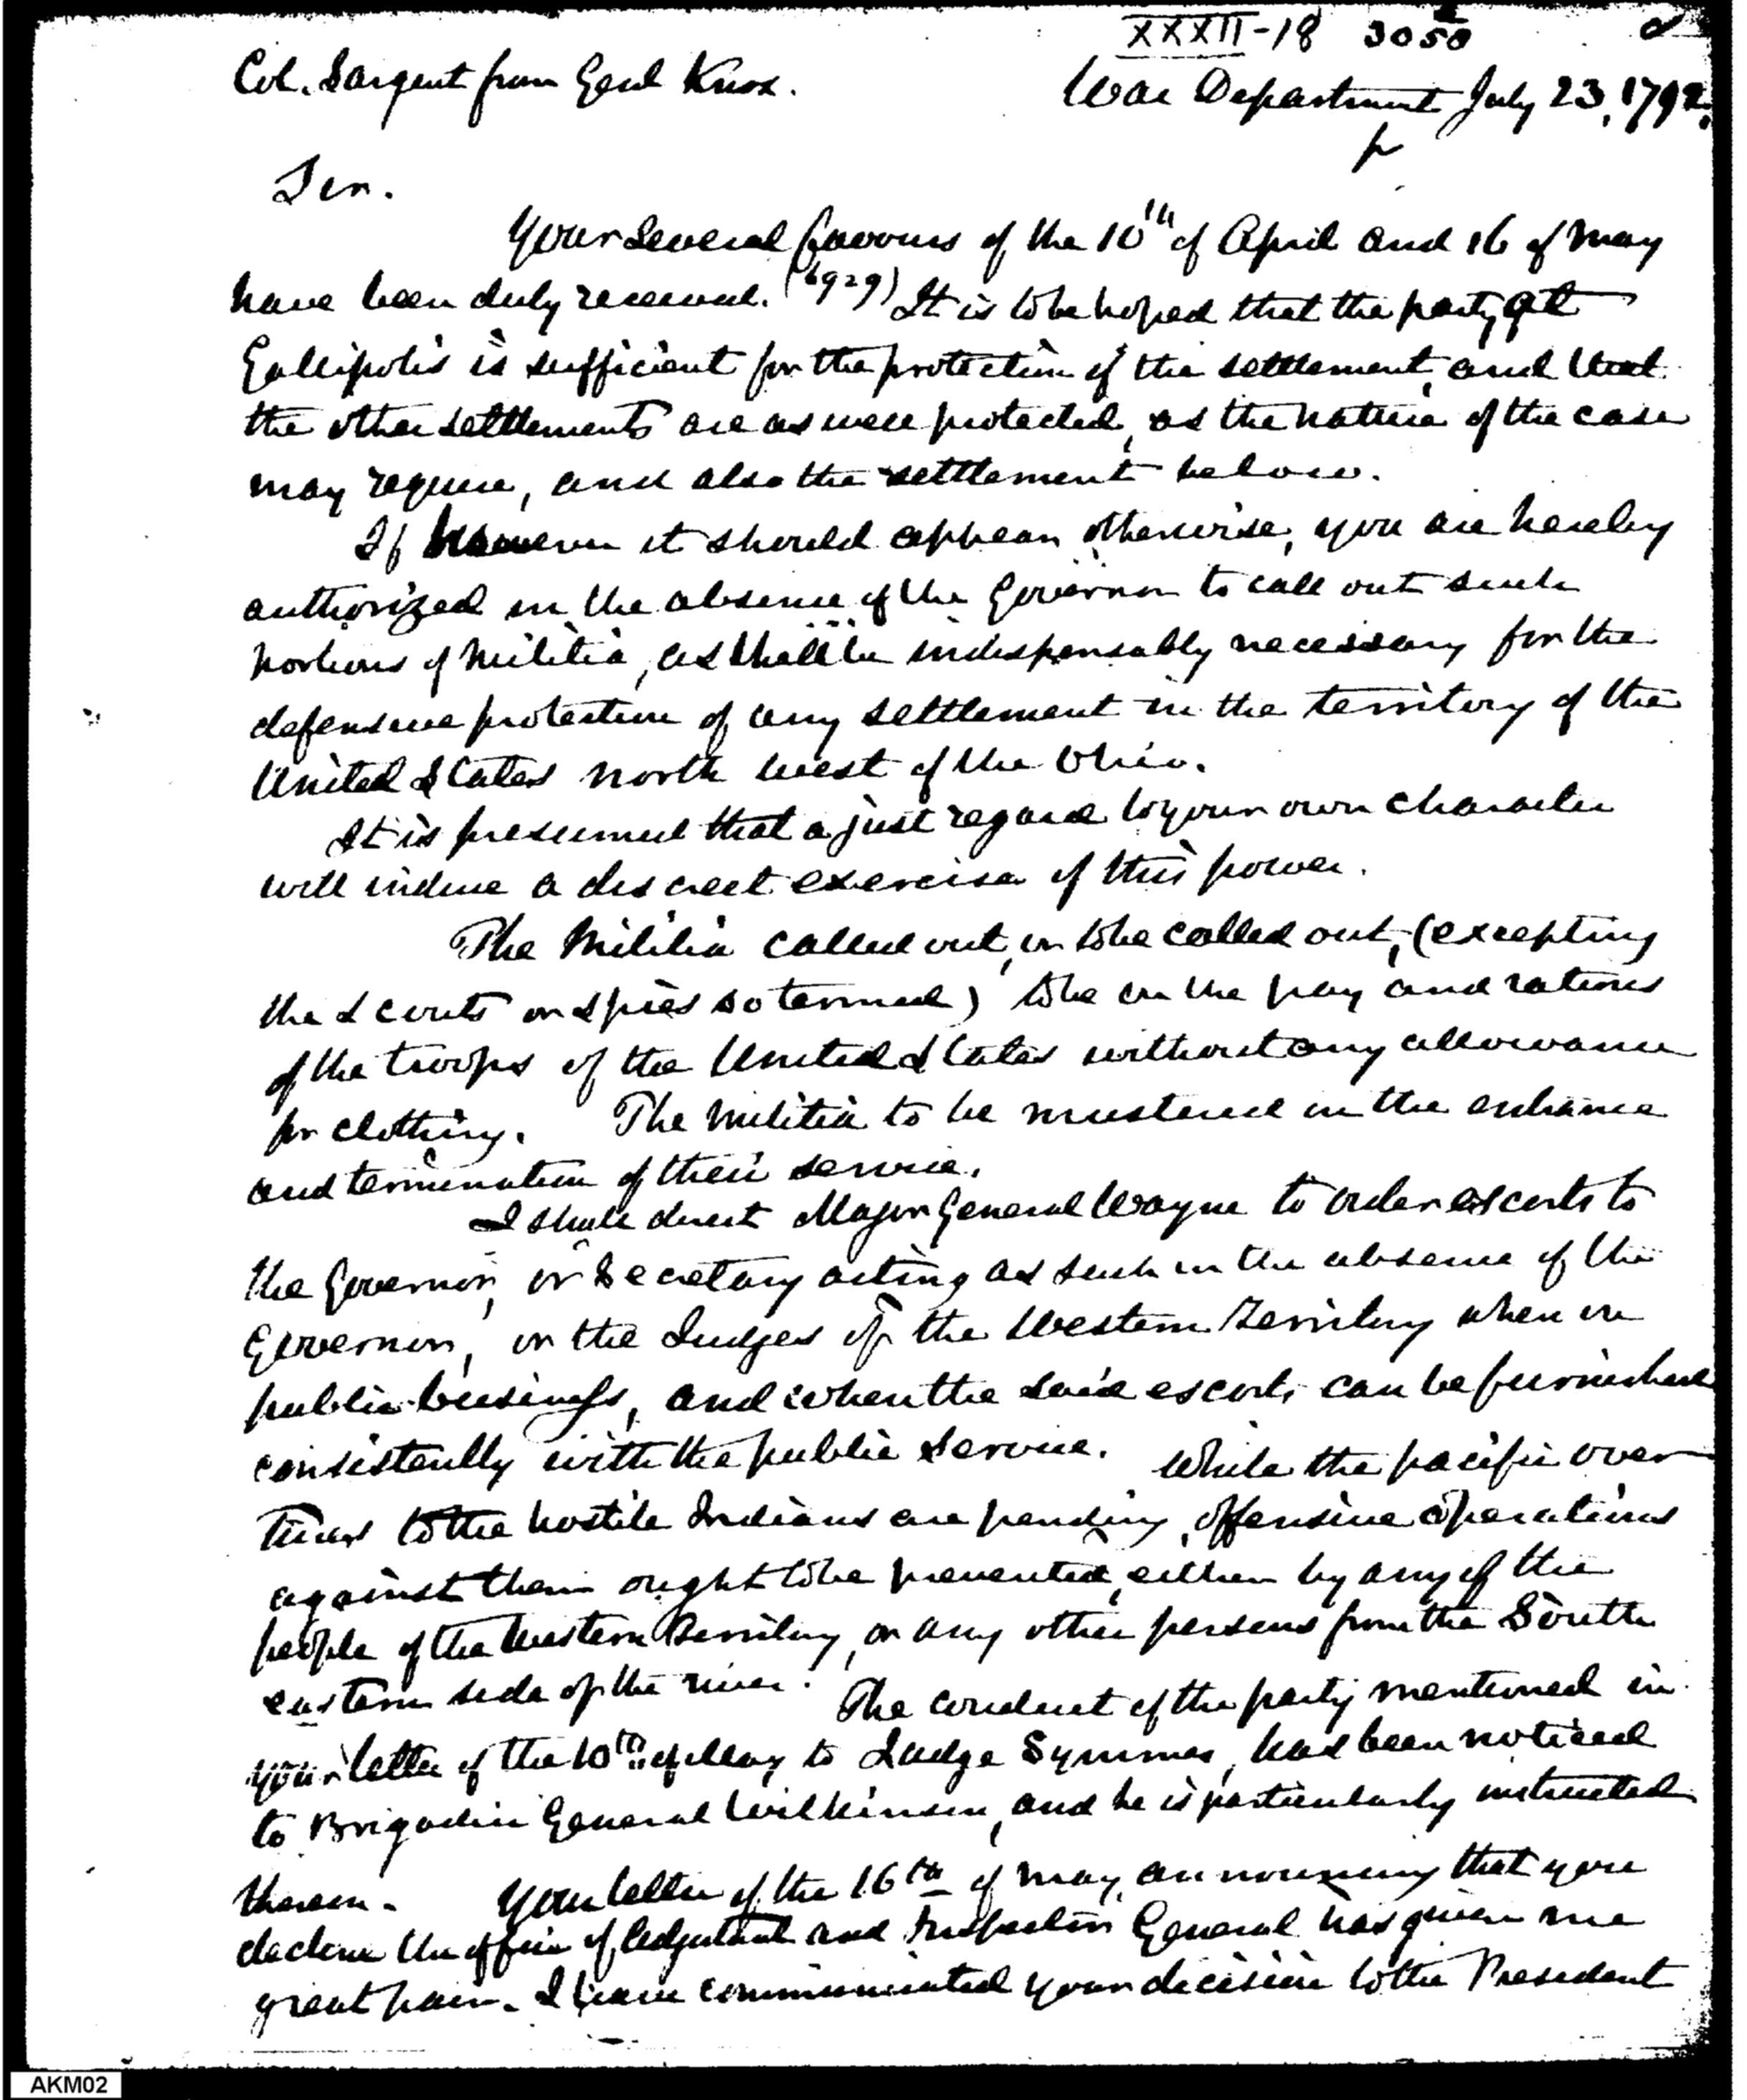 XXXII-18 3050
Col. Sargent from Genl Knox.
War Department July 23, 1792.
Sir.
Your several favours of the 10th of April and 16 of May
have been duly received. It is to be hoped that the party at
Gallipolis is sufficient for the protection of the settlement, and that
the other settlements are as well protected, as the nature of the case
may require, and also the settlement below.
If however it should appear otherwise, you are hereby
authorized in the absence of the Governor to call out such
portions of militia, as shall be indispensably necessary for the
defensive protection of any settlement in the territory of the
United States north west of the Ohio.
It is presumed that a just regard to your own character
will induce a discreet exercise of this power.
The Militia called out, or to be called out, (excepting
the scouts or spies so termed) to be on the pay and rations
of the troops of the United States without any allowance
for clothing. The militia to be mustered on the entrance
and termination of their service.
I shall direct Major General Wayne to order escorts to
the Governor, or Secretary acting as such in the absence of the
Governor, or the Judges of the Western Territory when on
public business, and when the said escorts can be furnished
consistently with the public service. While the pacific over
tures to the hostile Indians are pending, offensive operations
against them ought to be prevented, either by any of the
people of the Western Territory, or any other persons from the South
eastern side of the river. The conduct of the party mentioned in
your letter of the 10th of May to Judge Symmes, had been noticed
to Brigadier General Wilkinson, and he is particularly instructed
thereon. Your letter of the 16th of May, announcing that you
decline the office of Adjutant and Inspector General has given me
great pain. I have communicated your decision to the President
AKM02